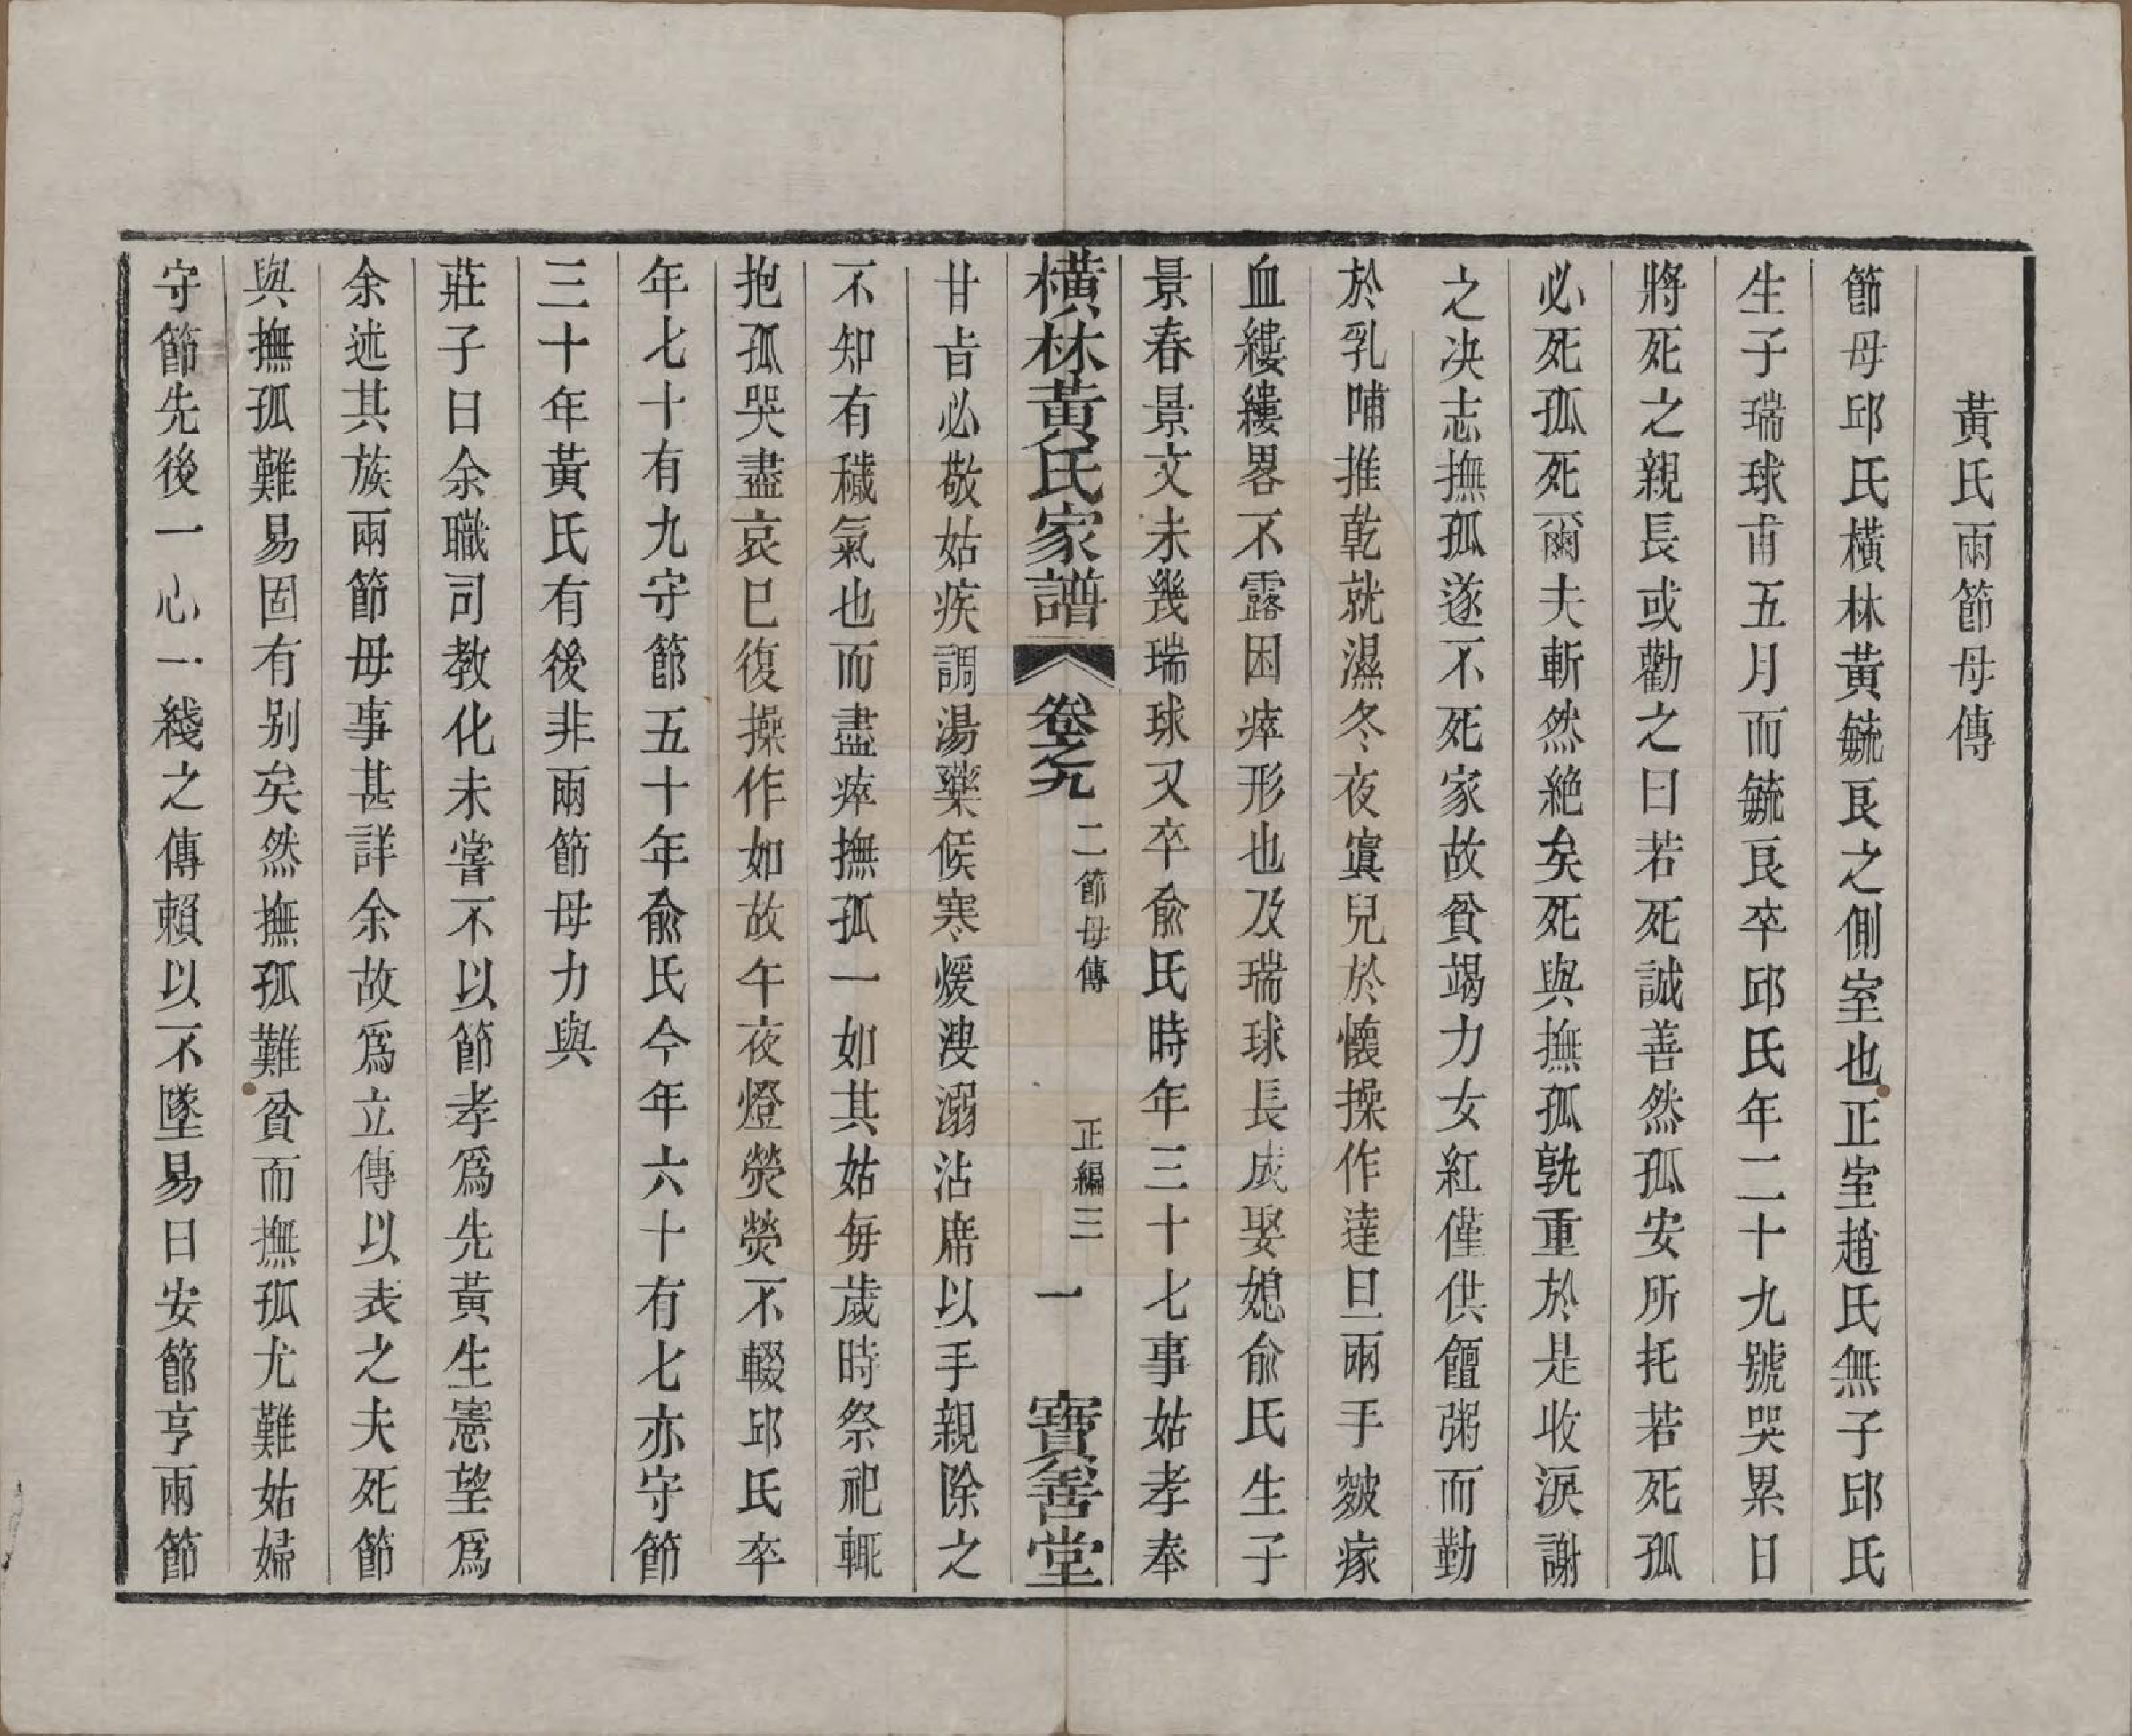 黃氏兩節母傳
節母邱氏橫林黃毓良之側室也正室趙氏無子邱氏
生子瑞球甫五月而毓良卒邱氏年二十九號哭累日
將死之親長或勸之曰若死誠善然孤安所托若死孤
必死孤死爾夫斬然絶矣死與撫孤孰重於是收淚謝
之决志撫孤遂不死家故貧竭力女紅僅供饘粥而勤
於乳哺推乾就濕冬夜寘兒於懷操作達旦兩手皴瘃
血縷縷畧不露困瘁形也及瑞球長成娶媳俞氏生子
景春景文未幾瑞球又卒俞氏時年三十七事姑孝奉
橫林黃氏家譜 卷之九 二節母傳 正編三 一 寶善堂
甘旨必敬姑疾調湯藥候寒煖溲溺沾席以手親除之
不知有穢氣也而盡瘁撫孤一如其姑每歲時祭祀輒
抱孤哭盡哀已復操作如故午夜燈熒熒不輟邱氏卒
年七十有九守節五十年俞氏今年六十有七亦守節
三十年黃氏有後非兩節母力與
莊子曰余職司教化未嘗不以節孝爲先黃生憲望爲
余述其族兩節毋事甚詳余故爲立傳以表之夫死節
與撫孤難易固有别矣然撫孤難貧而撫孤尤難姑婦
守節先後一心一綫之傳賴以不墜易曰安節亨兩節